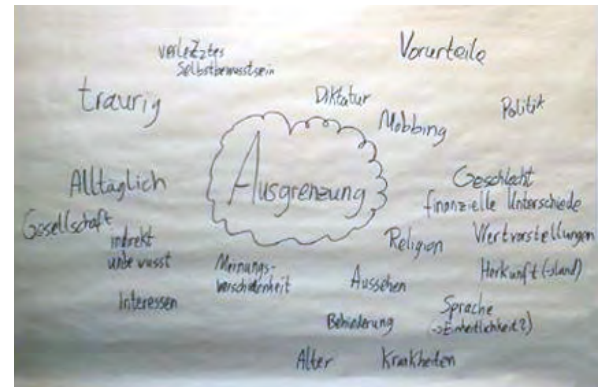 verletztes
Selbstbewusstsein
Vorurteile
traurig
Diktatur
Mobbing
Politik
Alltäglich
Ausgrenzung
Geschlecht
finanzielle Unterschiede
Gesellschaft
indirekt
unbewusst
Meinungs-
verschiedenheit
Religion
Wertvorstellungen
Aussehen
Herkunft (→land)
Interessen
Behinderung
Sprache
(→Einheitlichkeit?)
Alter
Krankheiten